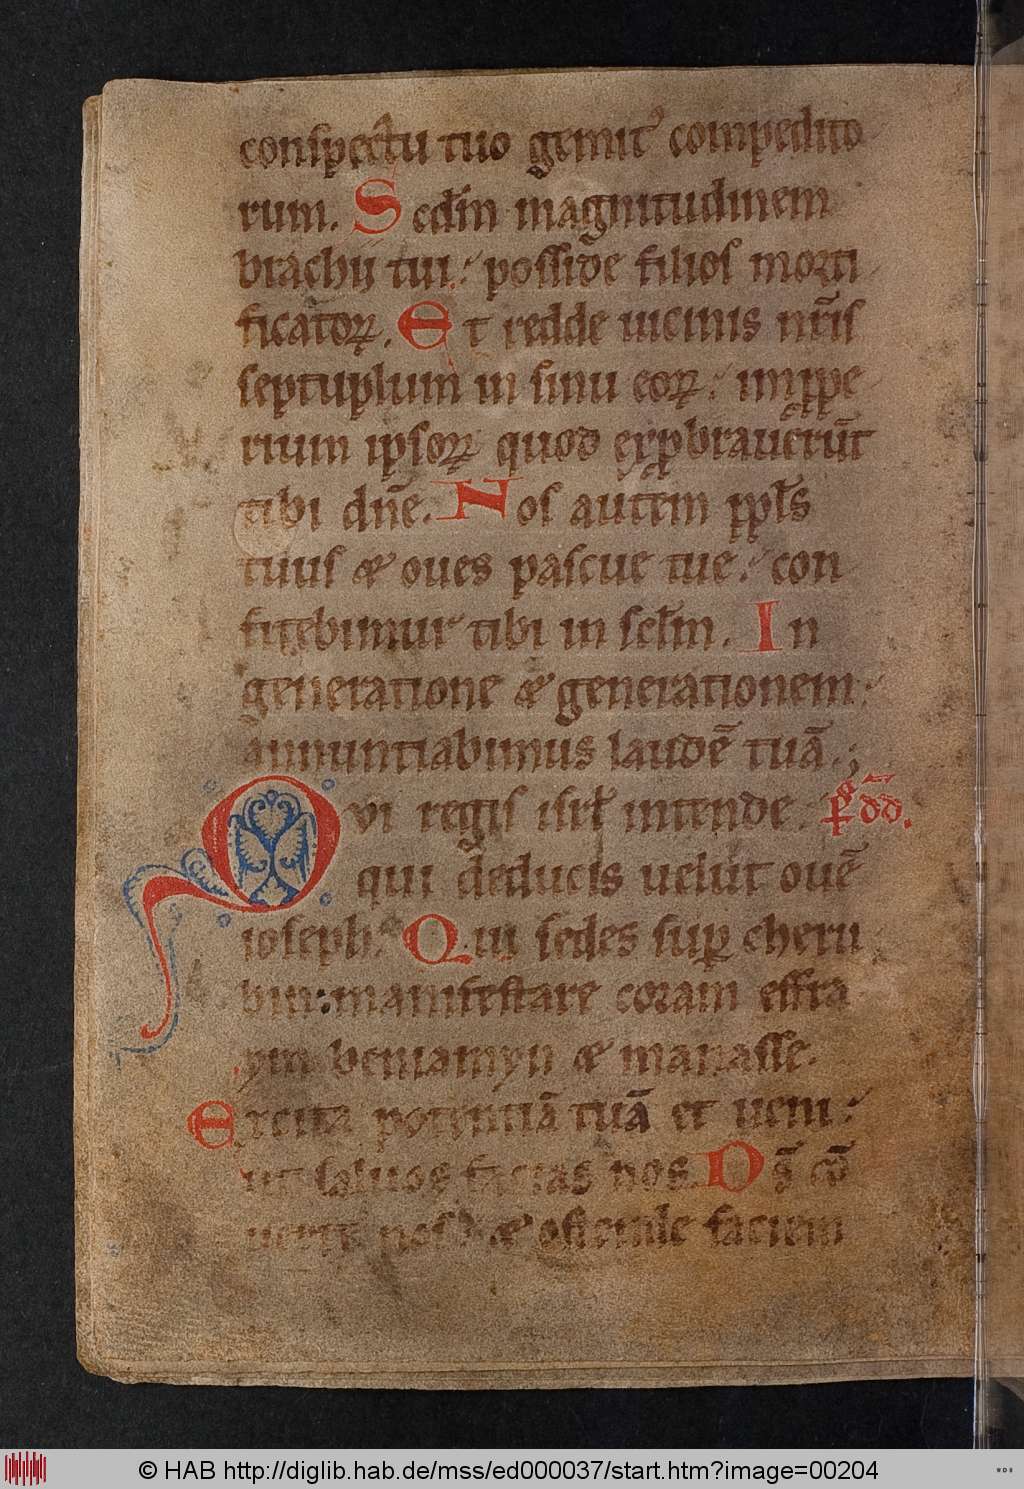 conspectu tuo gemit᾽ compedito
rum. Scdm̄ magnitudinem
brachij tui: posside filios morti
ficatoꝝ. Et redde uicinis nr̄is
septuplum in sinu eoꝝ: imppe
rium ipsoꝝ quod expbrauerūt
tibi dn̄e. Nos autem ppls̄
tuus & oues pascue tue: con
fitebimur tibi in scl̄m. In
generatione & generationem:
annuntiabimus laudē tuā.;
Qvi regis isrł intende. P̄s dd̄.
qui deducis uelut ouē
ioseph. Qui sedes suꝑ cheru
bin: manifestare coram effra
ym beniamyn & manasse.
Excita potentiā tuā et ueni:
ut saluos facias nos. Ds̄ cō
uerte nos: & ostende faciem
© HAB http://diglib.hab.de/mss/ed000037/start.htm?image=00204